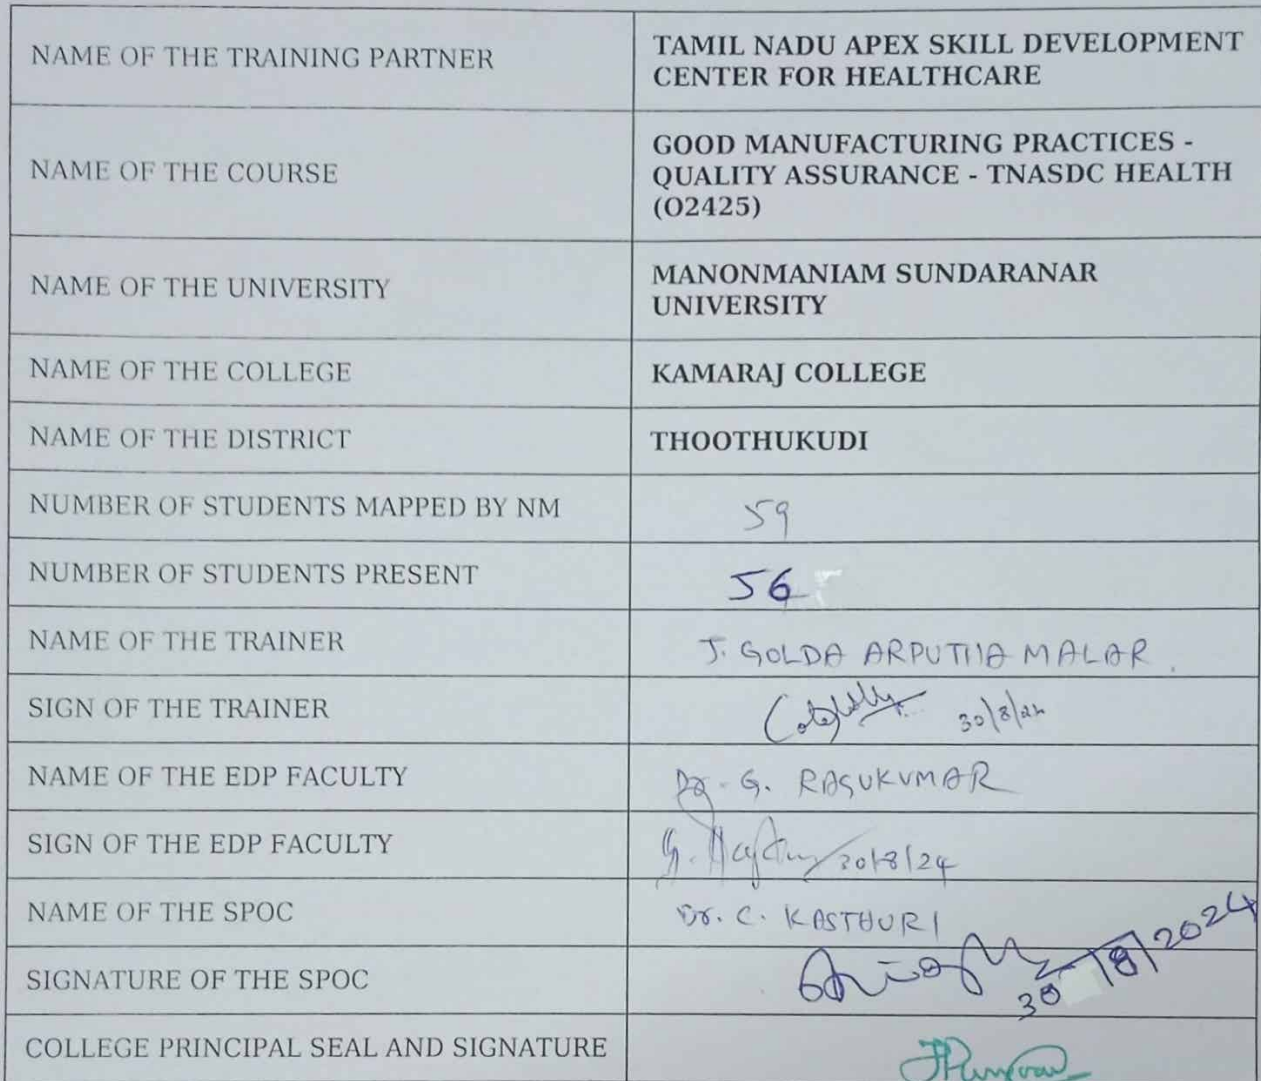 NAME OF THE TRAINING PARTNER
TAMIL NADU APEX SKILL DEVELOPMENT
CENTER FOR HEALTHCARE
NAME OF THE COURSE
GOOD MANUFACTURING PRACTICES -
QUALITY ASSURANCE - TNASDC HEALTH
(O2425)
NAME OF THE UNIVERSITY
MANONMANIAM SUNDARANAR
UNIVERSITY
NAME OF THE COLLEGE
KAMARAJ COLLEGE
NAME OF THE DISTRICT
THOOTHUKUDI
NUMBER OF STUDENTS MAPPED BY NM
59
NUMBER OF STUDENTS PRESENT
56
NAME OF THE TRAINER
J. GOLDA ARPUTHA MALAR
SIGN OF THE TRAINER
30/8/24
NAME OF THE EDP FACULTY
Dr. G. RAGUKUMAR
SIGN OF THE EDP FACULTY
30/8/24
NAME OF THE SPOC
Dr. C. KASTHURI
SIGNATURE OF THE SPOC
30/8/2024
COLLEGE PRINCIPAL SEAL AND SIGNATURE